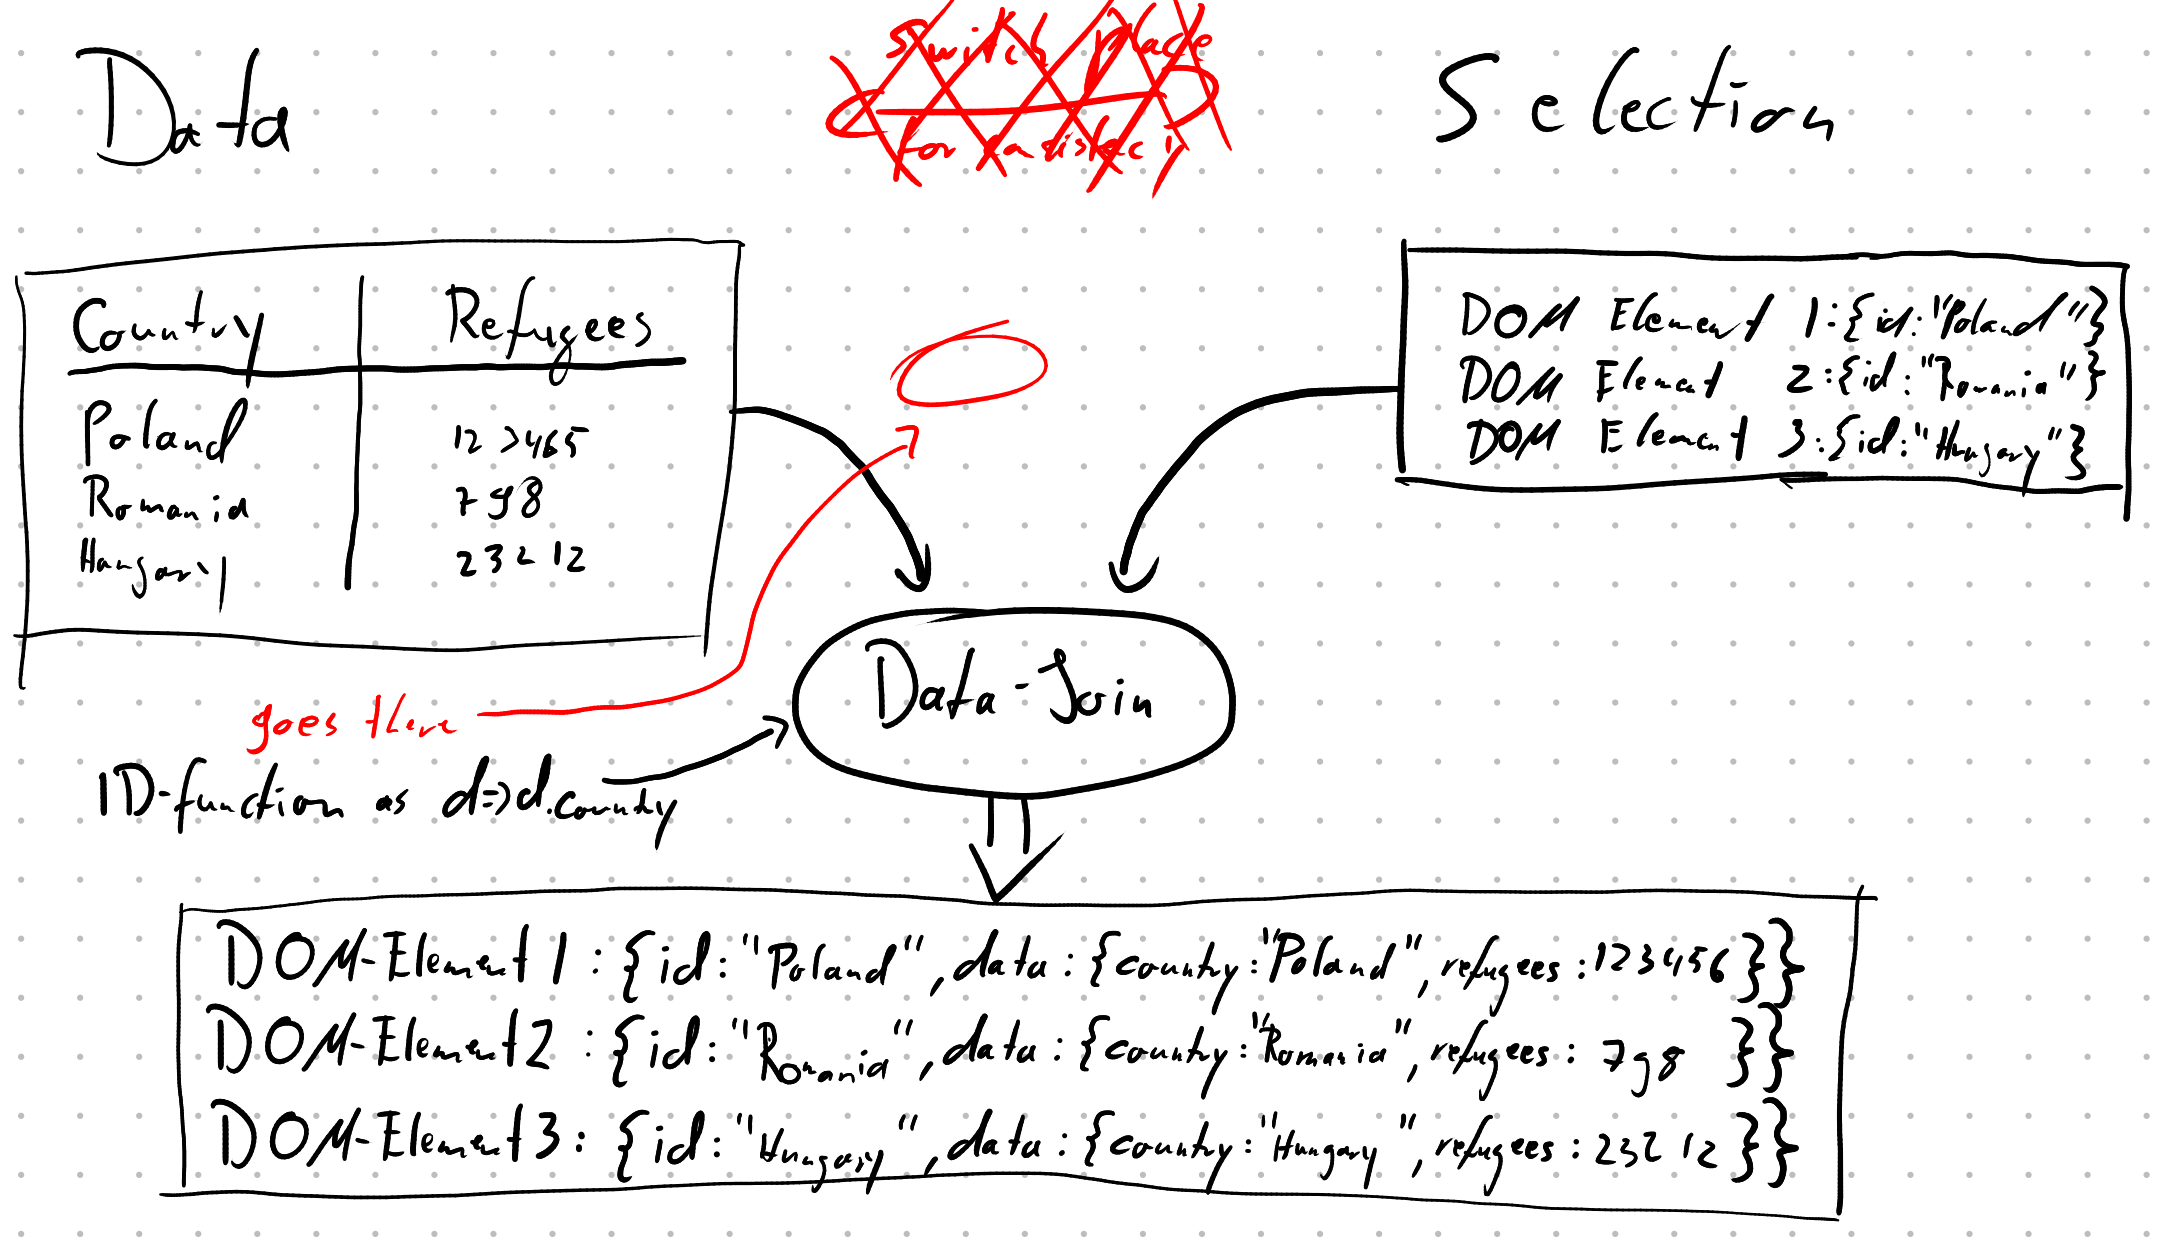 Switch place
for
Data
Selection
Country Refugees
Poland 123465
Romania 798
Hungary 23212
DOM Element 1:{id:"Poland"}
DOM Element 2:{id:"Romania"}
DOM Element 3:{id:"Hungary"}
Data-Join
goes there
ID-function as d=>d.country
DOM-Element 1:{id:"Poland",data:{country:"Poland",refugees:123456}}
DOM-Element 2:{id:"Romania",data:{country:"Romania",refugees:798}}
DOM-Element 3:{id:"Hungary",data:{country:"Hungary",refugees:23212}}